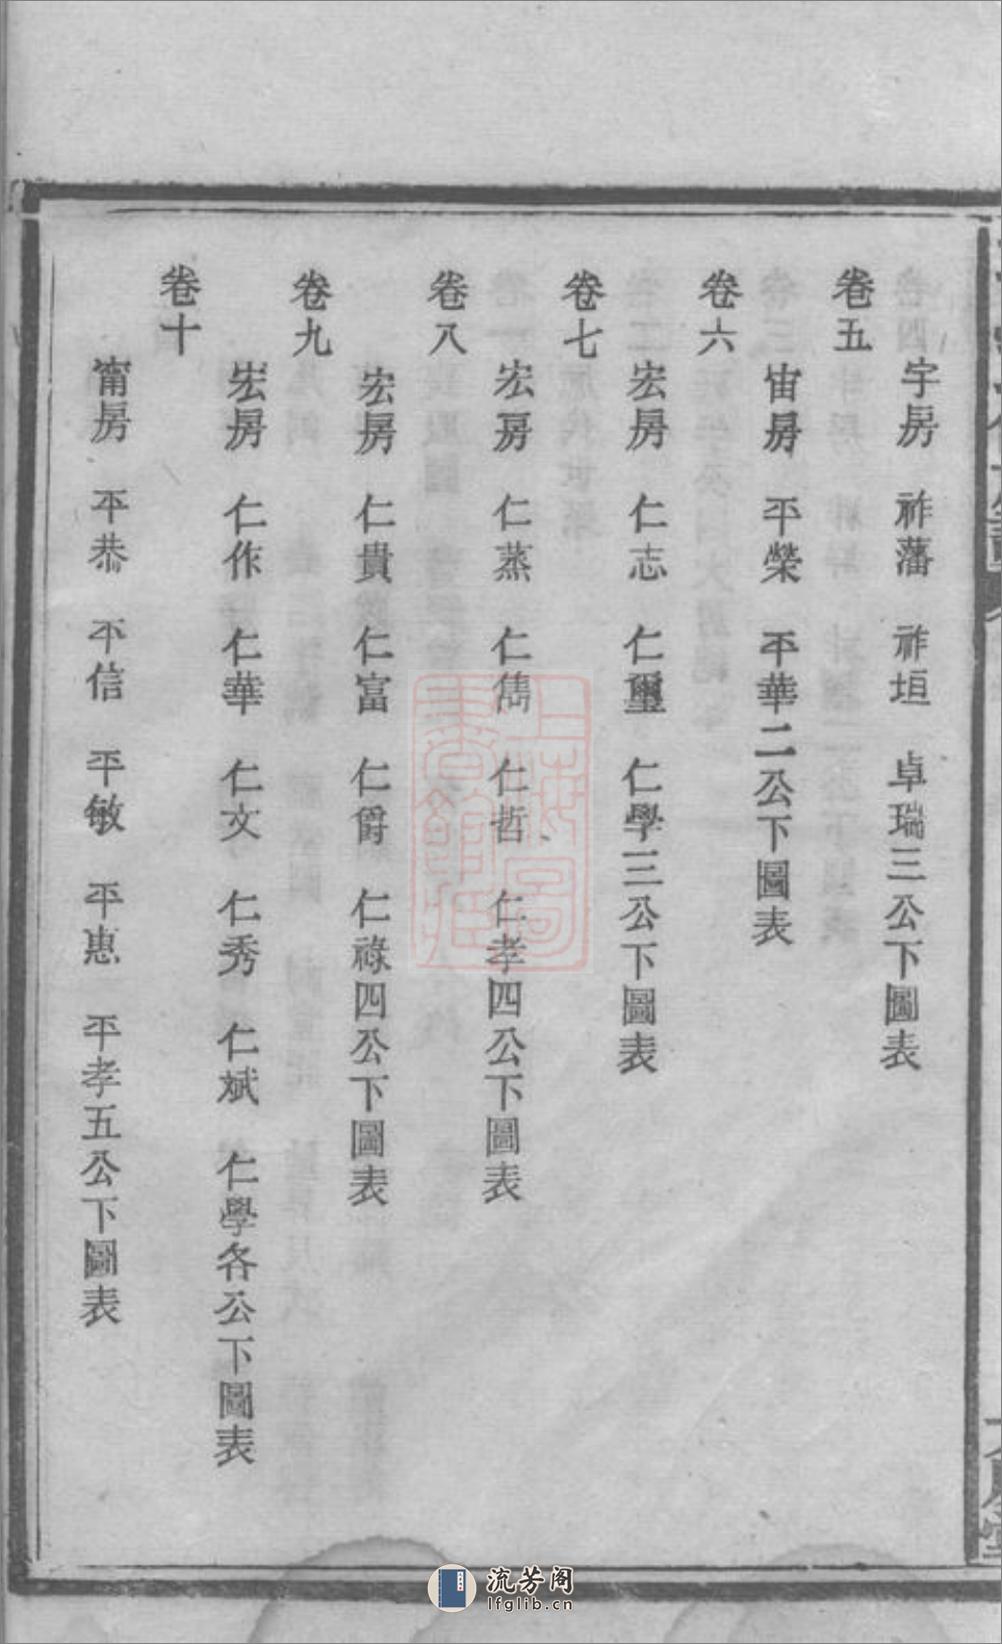 宇房　祚藩　祚垣　卓瑞三公下圖表
卷五
宙房　平榮　平華二公下圖表
卷六
宏房　仁志　仁璽　仁學三公下圖表
卷七
宏房　仁蒸　仁儁　仁哲　仁孝四公下圖表
卷八
宏房　仁貴　仁富　仁爵　仁祿四公下圖表
卷九
宏房　仁作　仁華　仁文　仁秀　仁斌　仁學各公下圖表
卷十
甯房　平恭　平信　平敏　平惠　平孝五公下圖表
上海圖書館藏
流芳阁
lfglib.cn